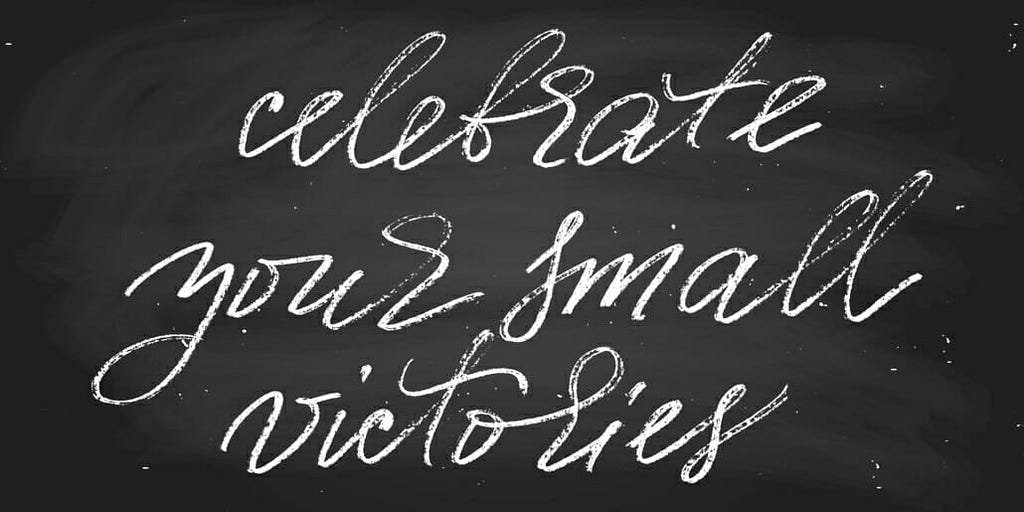 celebrate
your small
victories